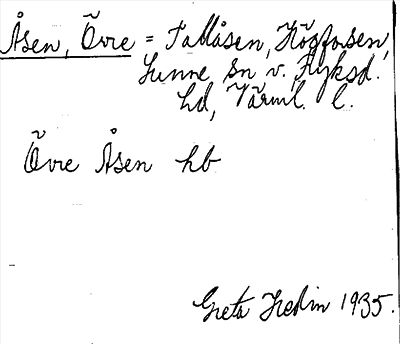 Åsen, Övre = Tallåsen, Högforsen,
Sunne sn v., Fryksd.
hd, Värml. l.
Övre Åsen hb
Greta Hedin 1935.